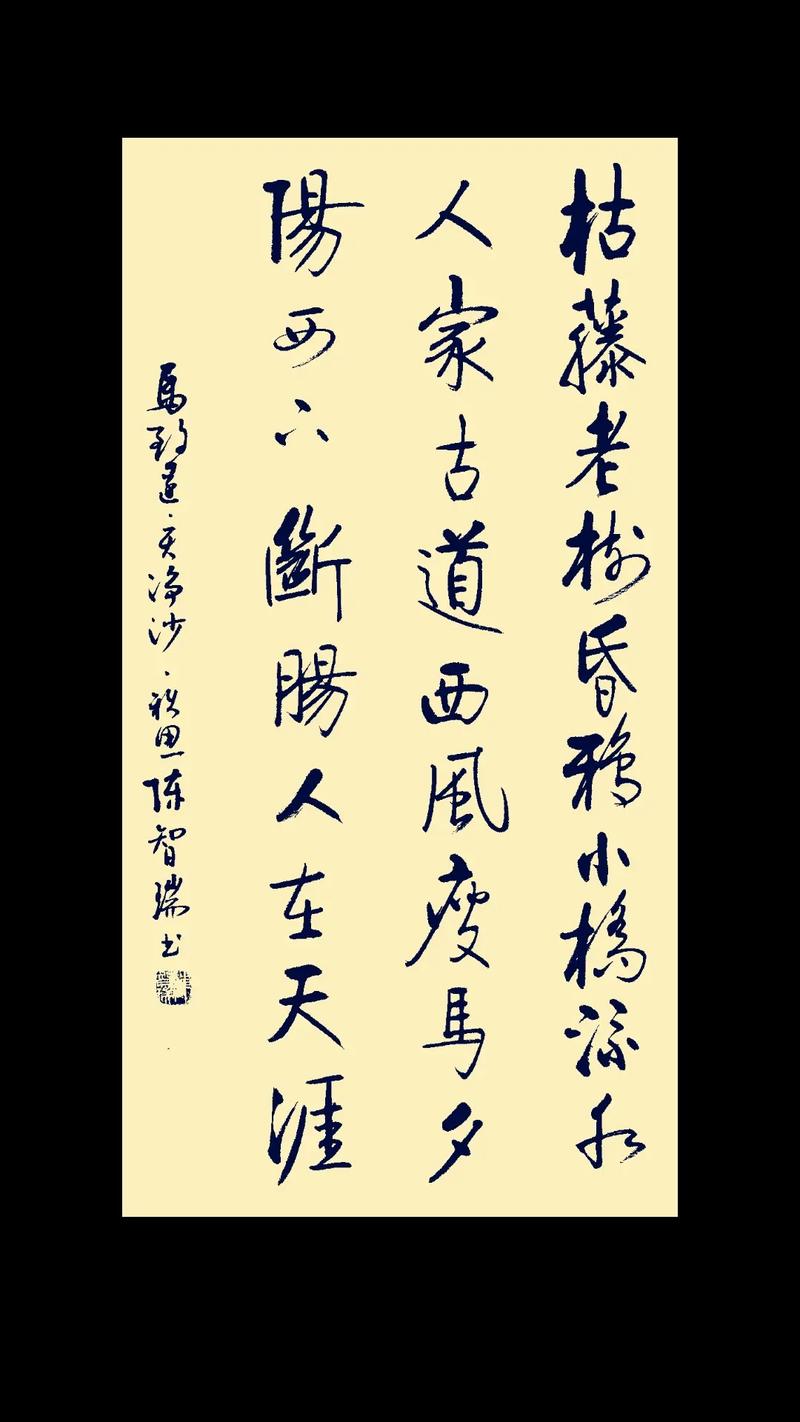 枯藤老樹昏鴉小橋流水
人家古道西風瘦馬夕
陽西下斷腸人在天涯
馬致遠·天淨沙·秋思陈智瑞书